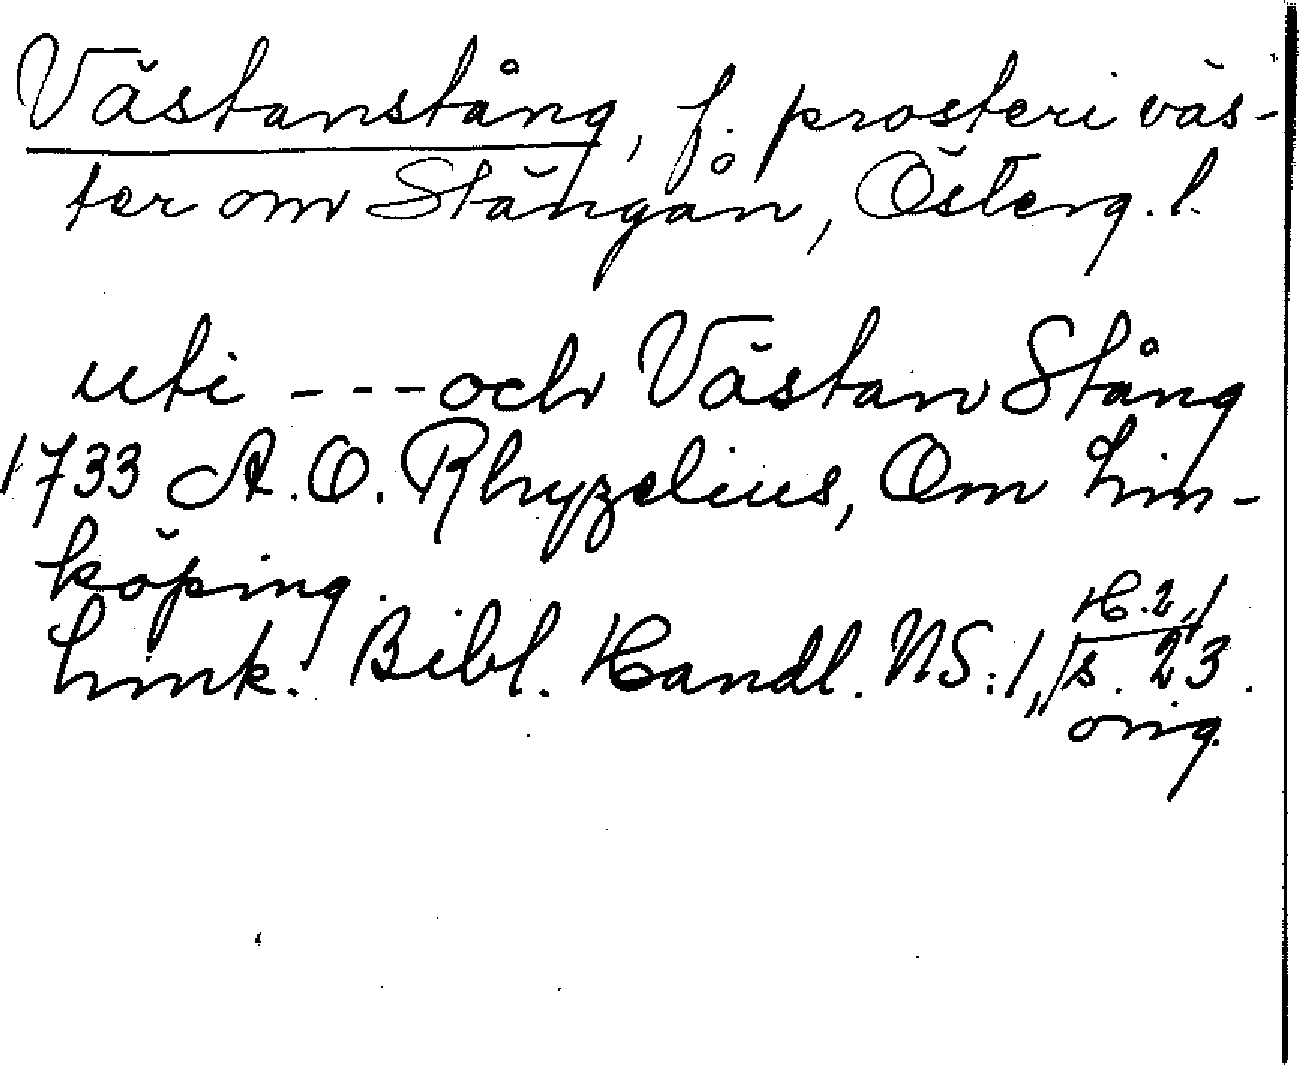 Västanstång, f. prosteri väs-
ter om Stångån, Österg. l.
uti - - - och Västan Stång
1733 A. O. Rhyzelius, Om Lin-
köping.
H. 2,
Link. Bibl. Handl. NS: 1, s. 23.
orig.